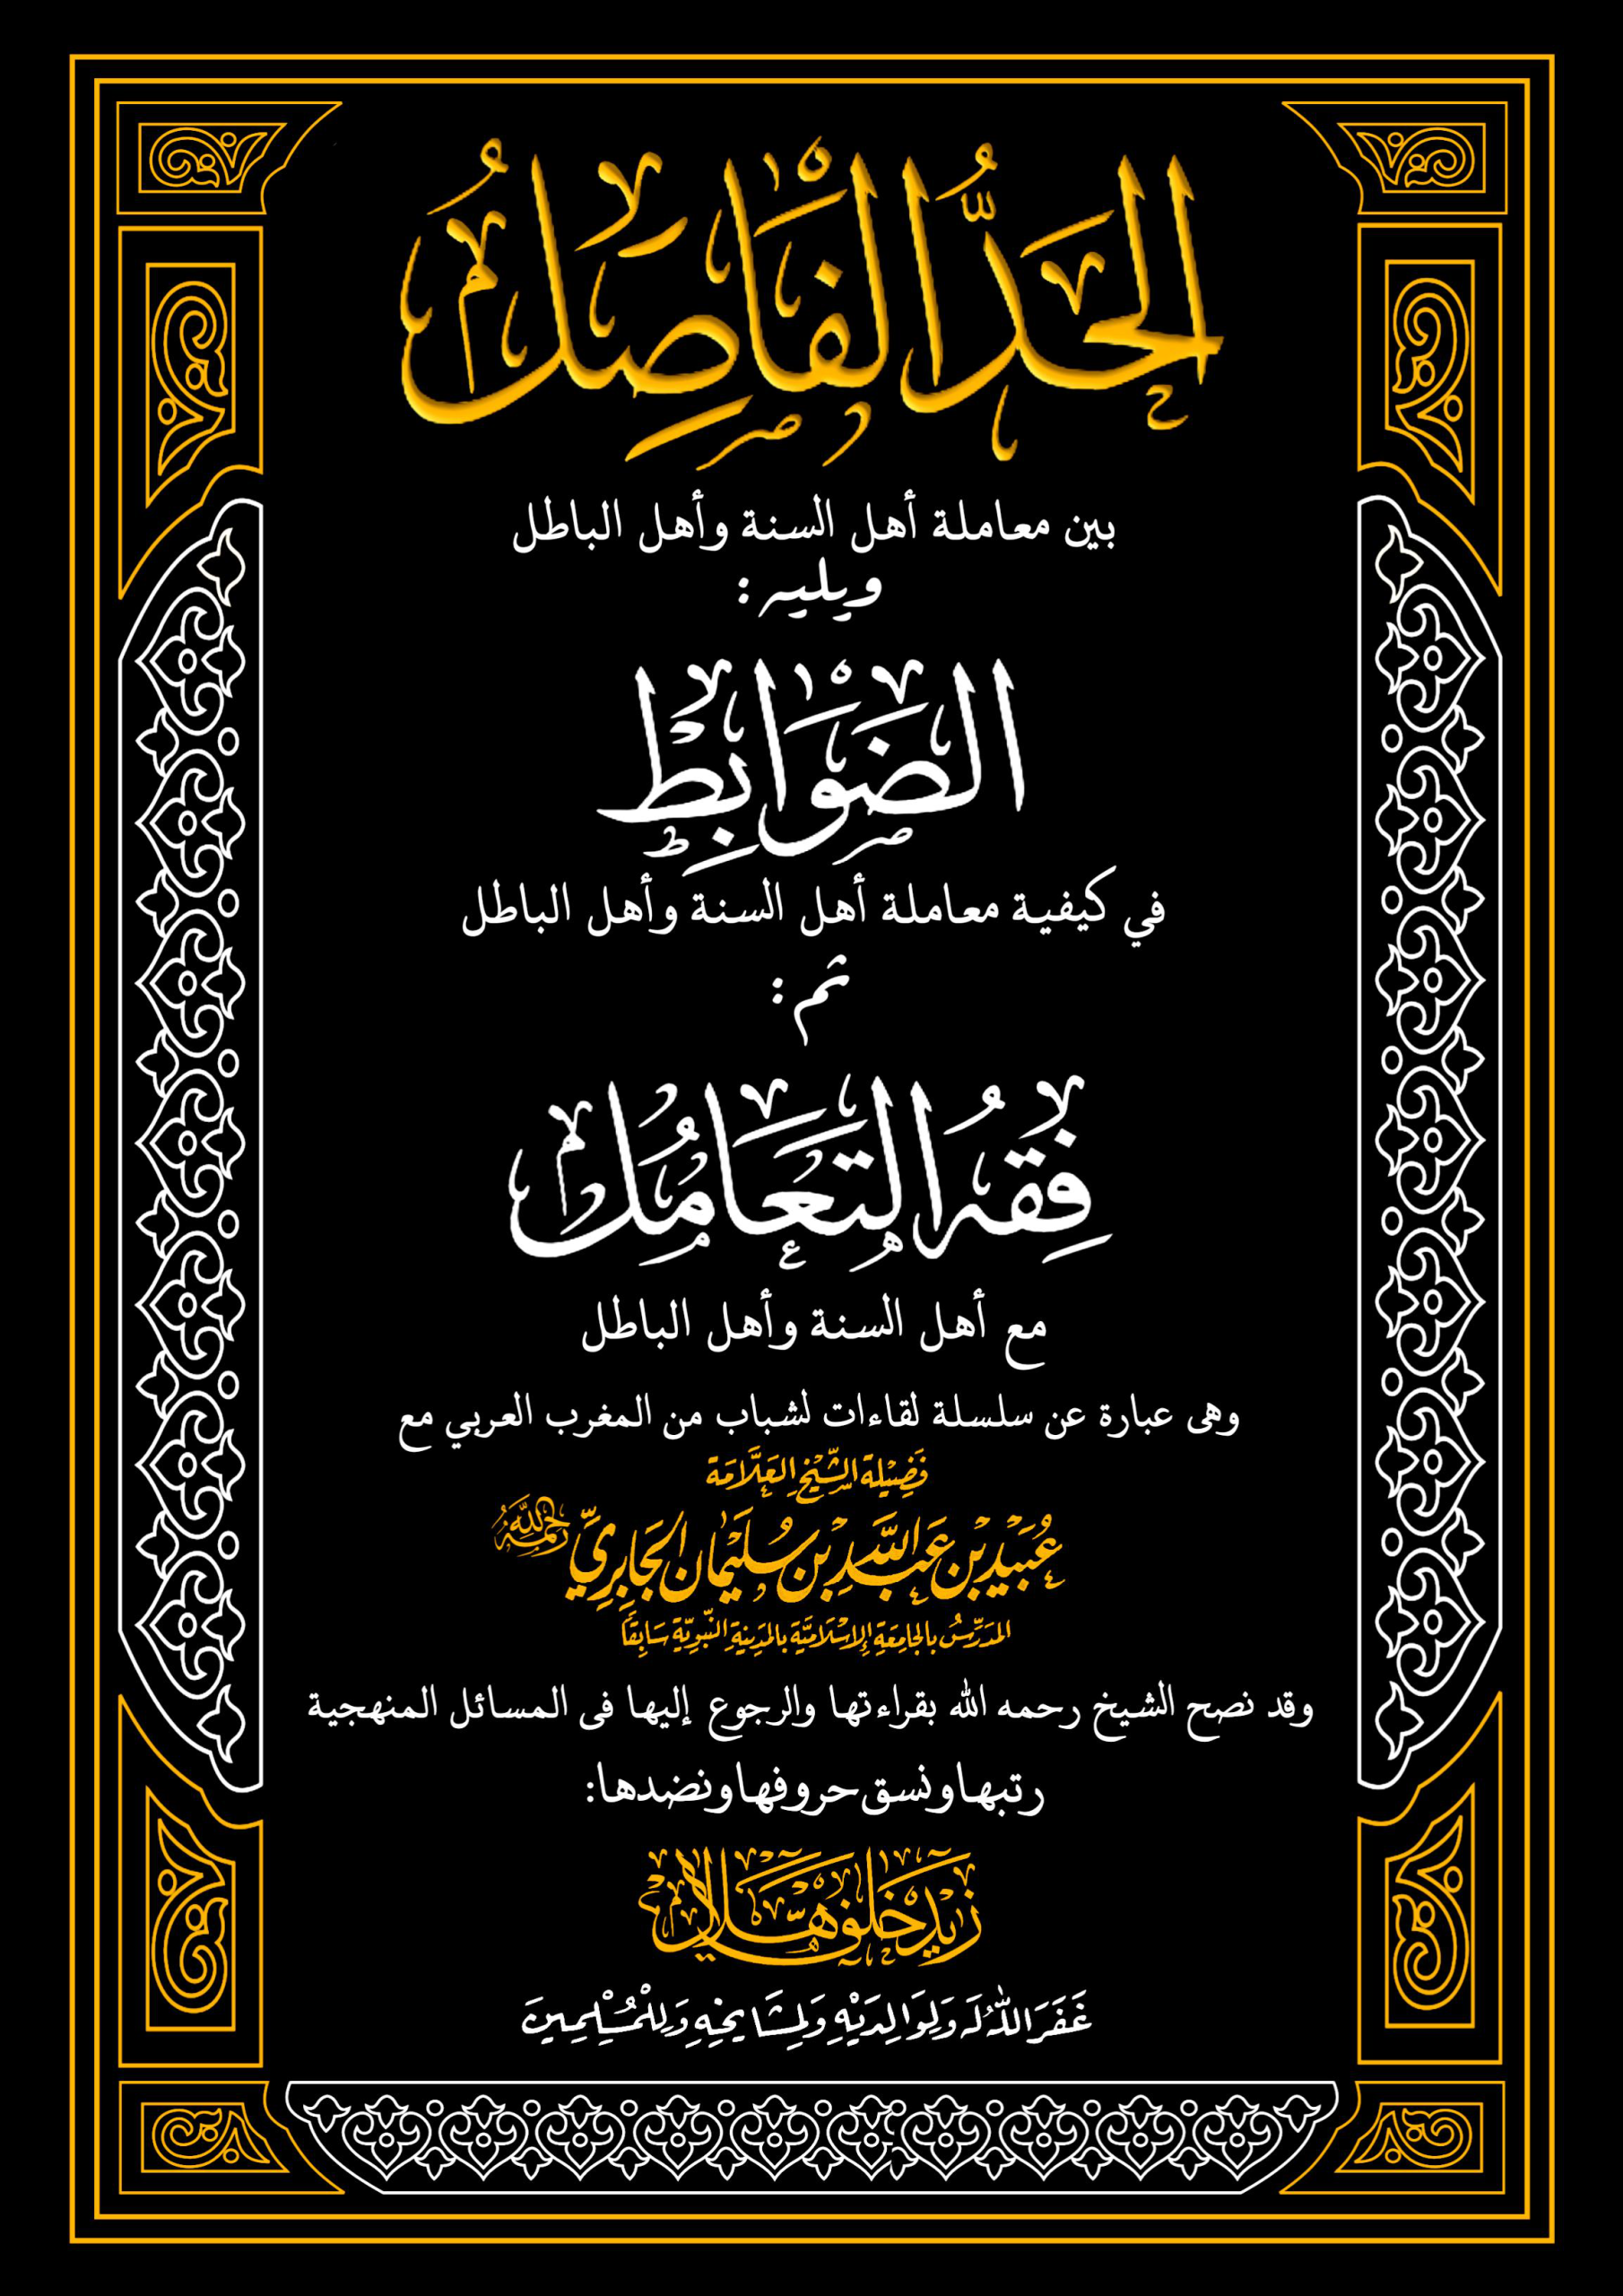 الحَدُّ الْفَاصِلُ
بين معاملة أهل السنة وأهل الباطل
ويليه :
الضَّوَابِطُ
في كيفية معاملة أهل السنة وأهل الباطل
ثم :
فِقْهُ التَّعَامُلِ
مع أهل السنة وأهل الباطل
وهى عبارة عن سلسلة لقاءات لشباب من المغرب العربي مع
فَضِيْلة الشَّيْخِ العَلَّامَة
عُبَيْدِ بْنِ عَبْدِ اللَّهِ بْنِ سُلَيْمَان الجَابِرِيِّ رَحِمَهُ اللَّهُ
المدَرِّسُ بالجَامِعَةِ الإِسْلَامِيَّةِ بالمَدِينةِ النَّبَوِيَّةِ سَابِقًا
وقد نصح الشيخ رحمه الله بقراءتها والرجوع إليها فى المسائل المنهجية
رتبها ونسق حروفها ونضدها:
زَيْد خَلَف هلال
غَفَرَ اللَّهُ لَهُ وَلِوَالِدَيْهِ وَلِمَشَايِخِهِ وَلِلْمُسْلِمِينَ